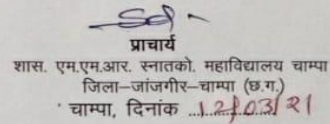 Sd/-
प्राचार्य
शास. एम.एम.आर. स्नातको. महाविद्यालय चाम्पा
जिला–जांजगीर–चाम्पा (छ.ग.)
चाम्पा, दिनांक ...12/03/21